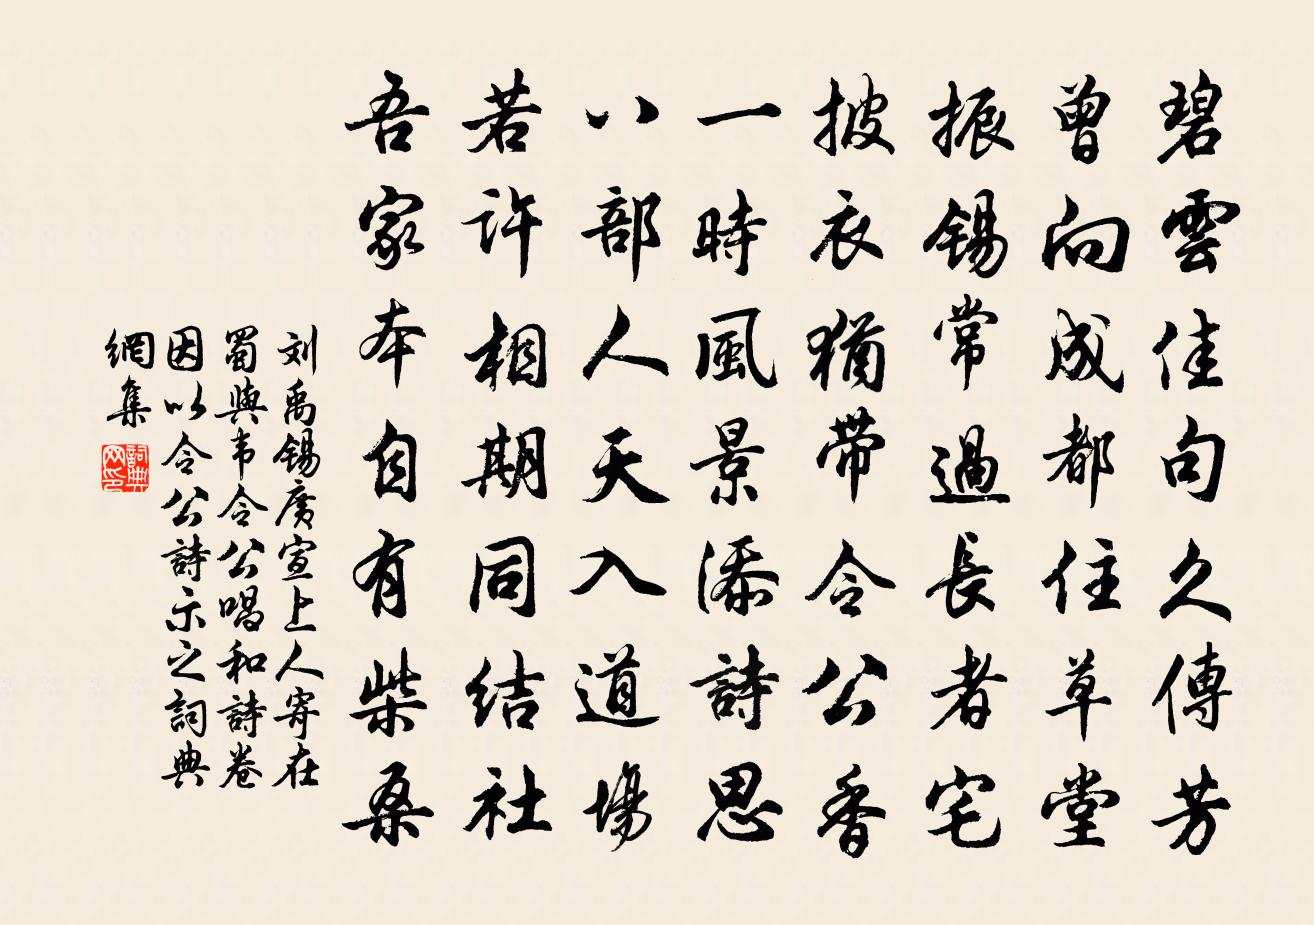 碧雲佳句久傳芳
曾向成都住草堂
振錫常過長者宅
披衣猶帶令公香
一時風景添詩思
八部人天入道場
若許相期同結社
吾家本自有柴桑
刘禹锡廣宣上人寄在
蜀與韦令公唱和詩卷
因以令公詩示之詞典
網集
詞典
网印